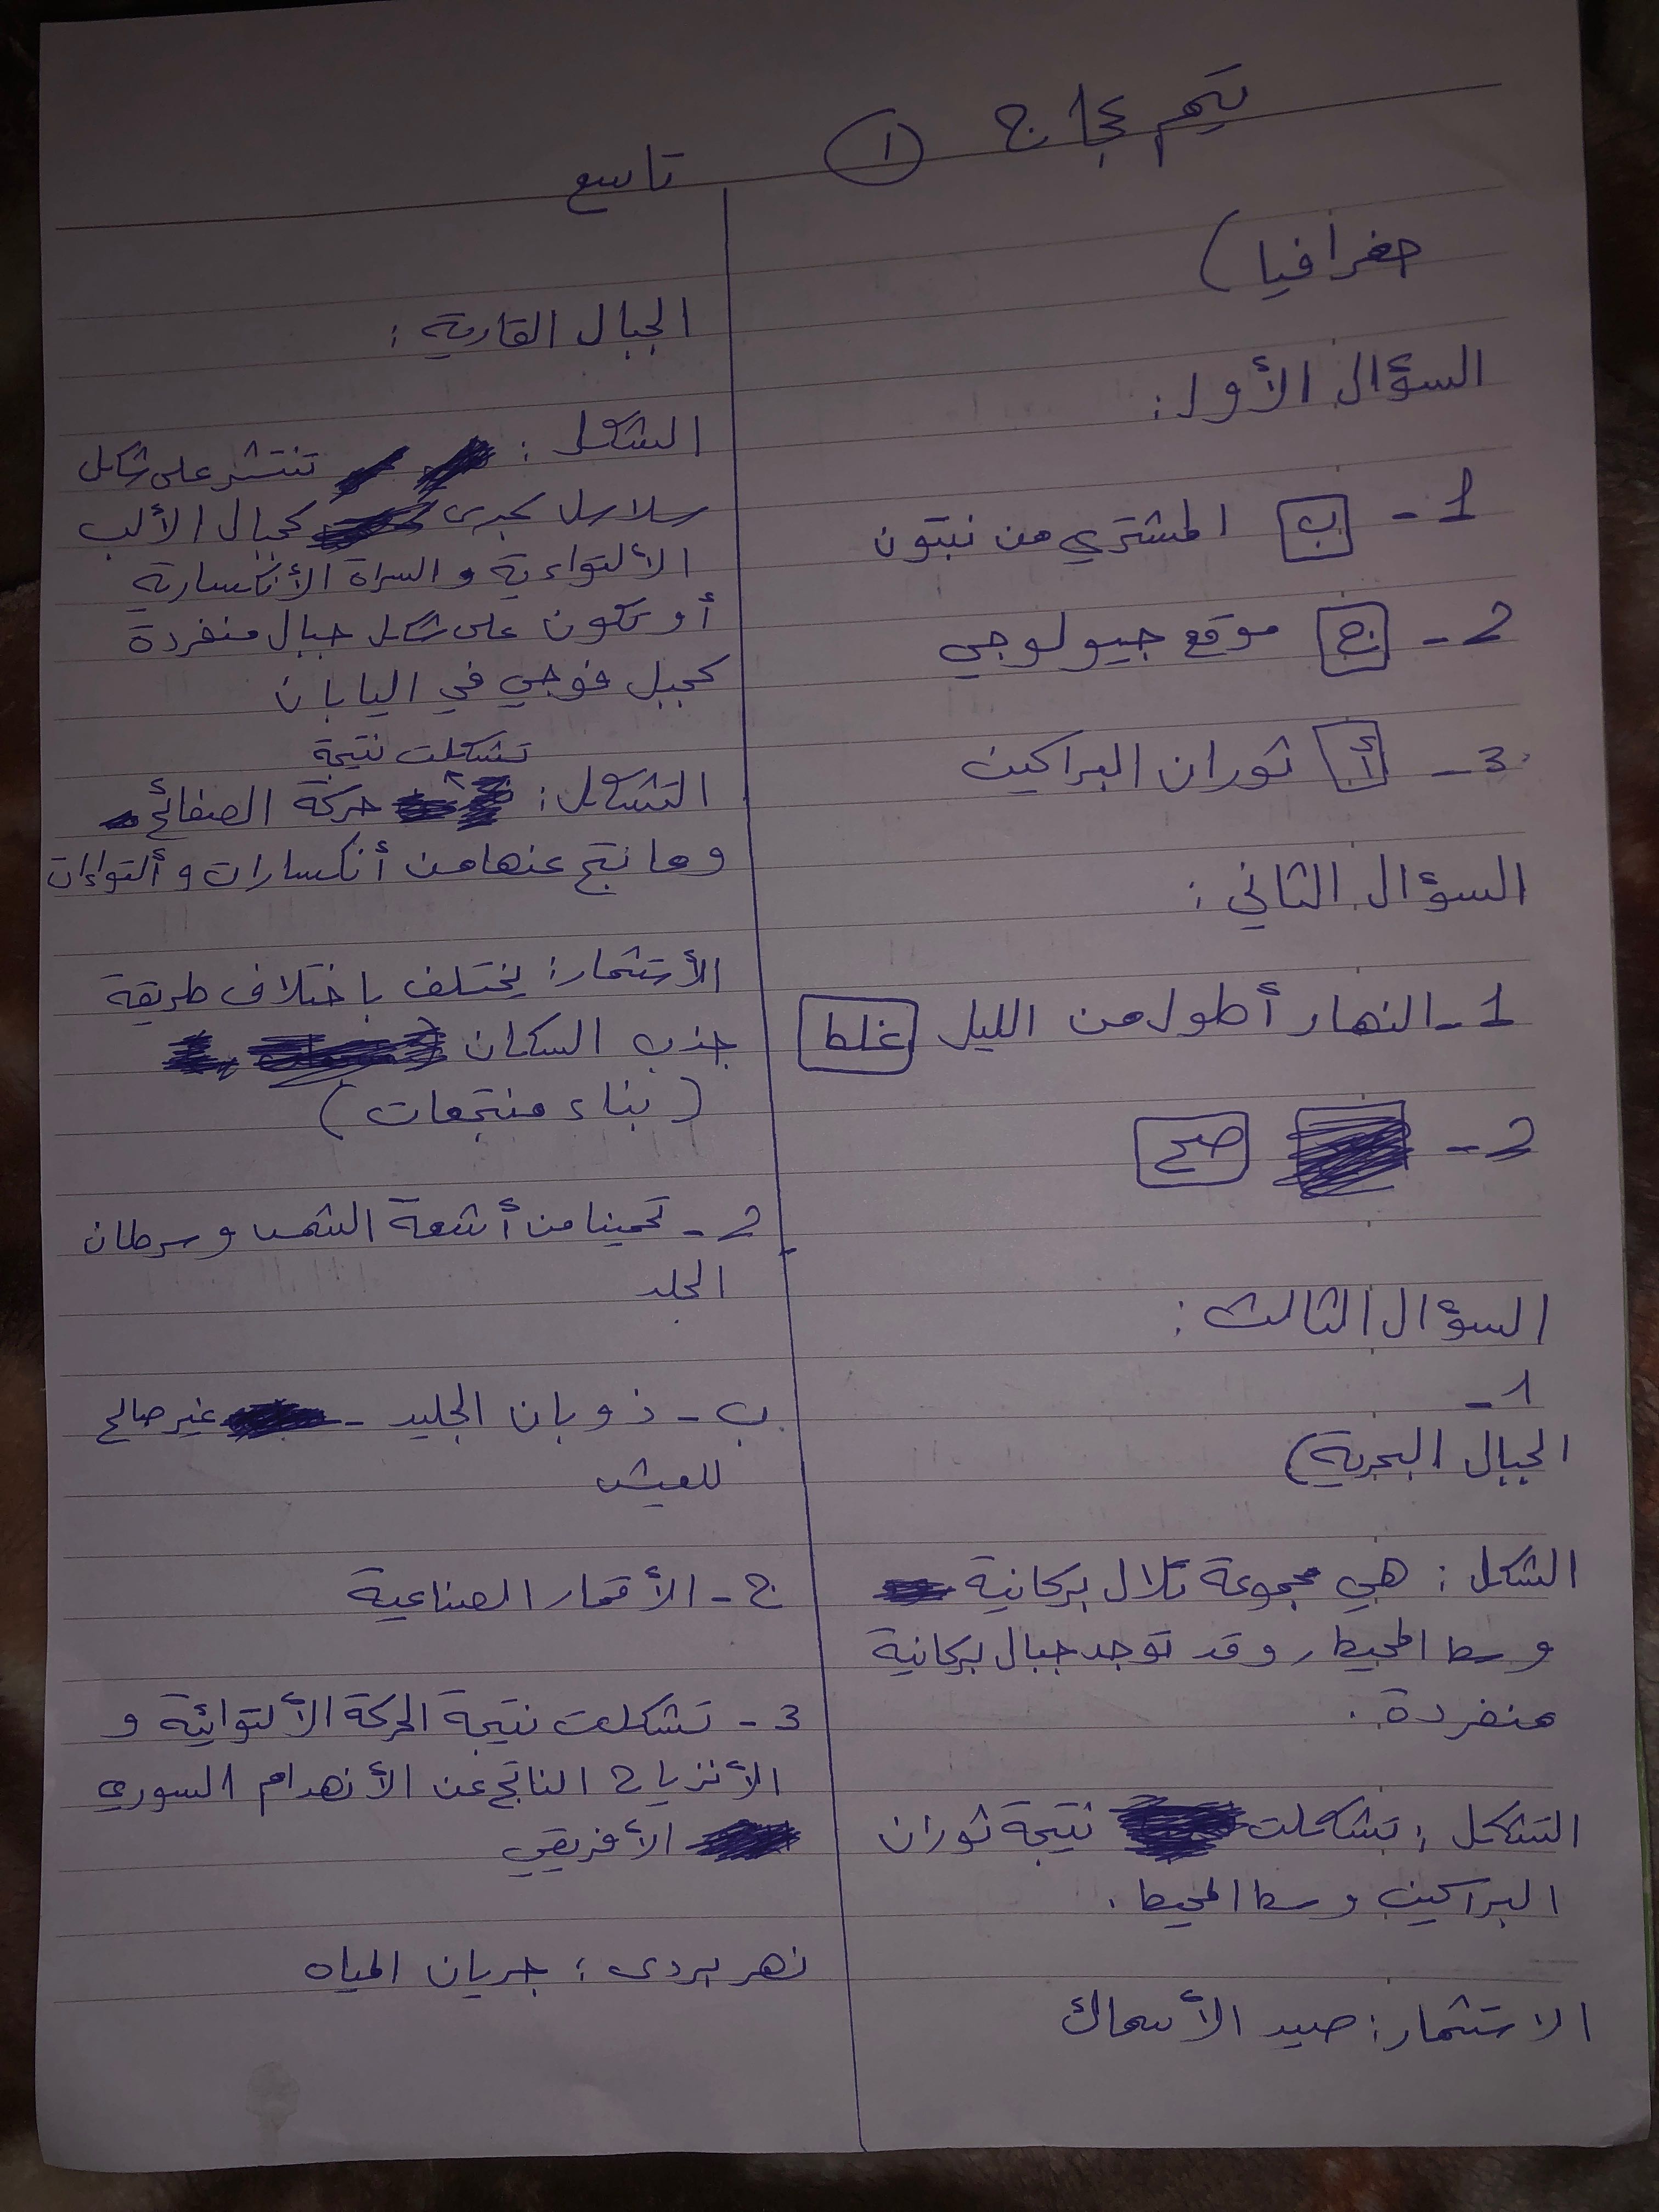 تيم عجاج ١ تاسع
جغرافيا)
السؤال الأول:
1- ب المشتري من نبتون
2- ج موقع جيولوجي
3- أ ثوران البراكين
السؤال الثاني:
1- النهار أطول من الليل غلط
2- صح
السؤال الثالث:
1-
الجبال البحرية)
الشكل: هي مجموعة تلال بركانية
وسط المحيط, وقد توجد جبال بركانية
منفردة.
التشكل: تشكلت نتيجة ثوران
البراكين وسط المحيط.
الاستثمار: صيد الأسماك
الجبال القارية:
الشكل: تنتشر على شكل
سلاسل كبرى كجبال الألب
الألتواءية والسراة الأنكسارية
أو تكون على شكل جبال منفردة
كجبل فوجي في اليابان
تشكلت نتيجة
التشكل: حركة الصفائح
وما نتج عنها من أنكسارات وألتواءات
الأستثمار: يختلف باختلاف طريقة
جذب السكان
(بناء منتجعات)
2- تحمينا من أشعة الشمس وسرطان
الجلد
ب- ذوبان الجليد - غير صالح
للعيش
ج- الأقمار الصناعية
3- تشكلت نتيجة الحركة الألتوائية و
الأنزياح الناتج عن الأنهدام السوري
الأفريقي
نهر بردى: جريان المياه